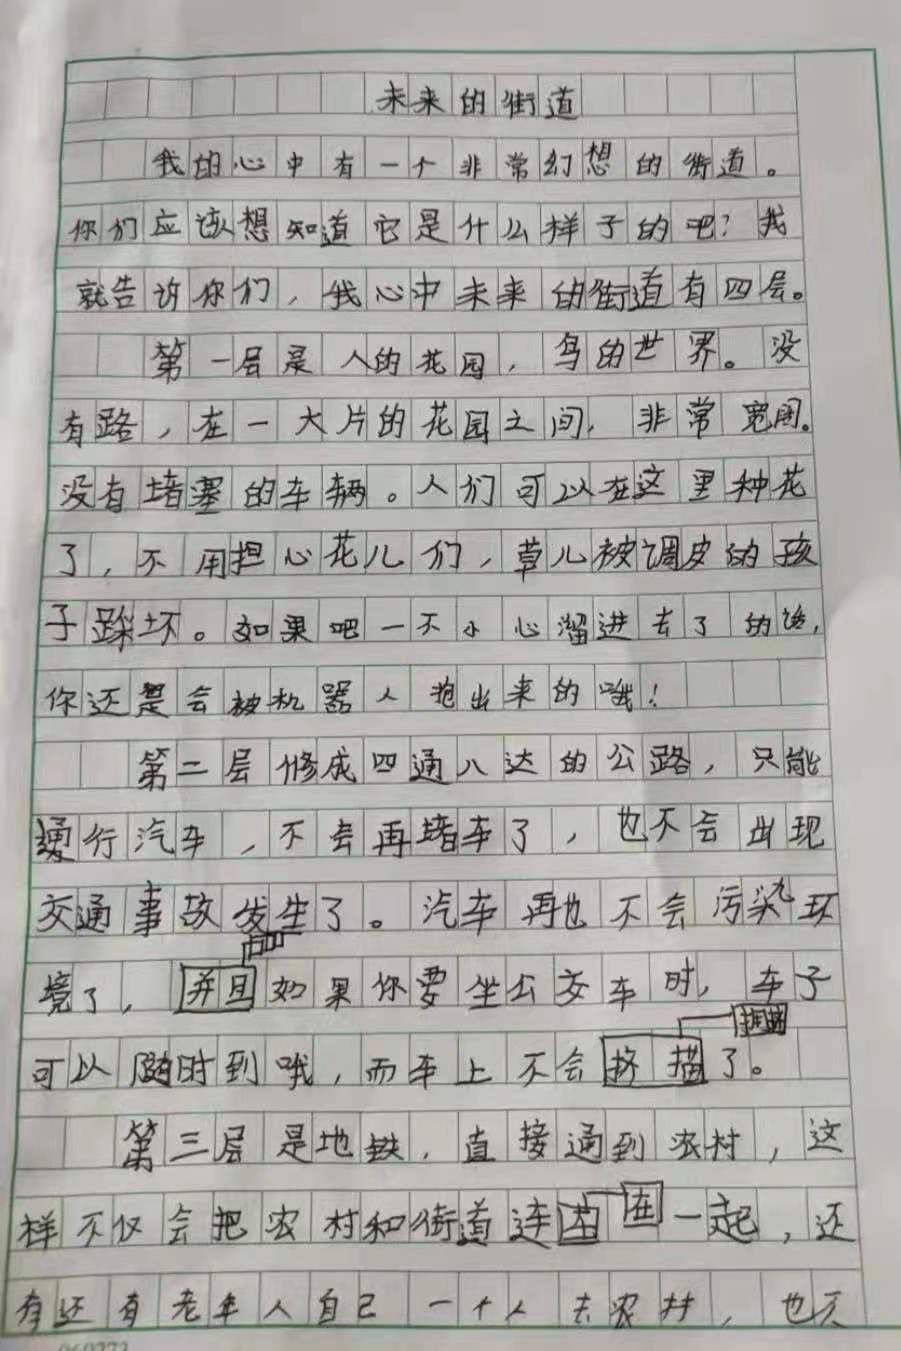 未来的街道
我的心中有一个非常幻想的街道。
你们应该想知道它是什么样子的吧？我
就告诉你们，我心中未来的街道有四层。
第一层是人的花园，鸟的世界。没
有路，在一大片的花园之间，非常宽阔。
没有堵塞的车辆。人们可以在这里种花
了，不用担心花儿们，草儿被调皮的孩
子踩坏。如果吧一不小心溜进去了的话，
你还是会被机器人抱出来的哦！
第二层修成四通八达的公路，只能
通行汽车，不会再堵车了，也不会出现
交通事故发生了。汽车再也不会污染环
境了，并且如果你要坐公交车时，车子
可以随时到哦，而车上不会挤描了。
第三层是地铁，直接通到农村，这
样不仅会把农村和街道连在一起，还
有还有老年人自己一个人去农村，也不